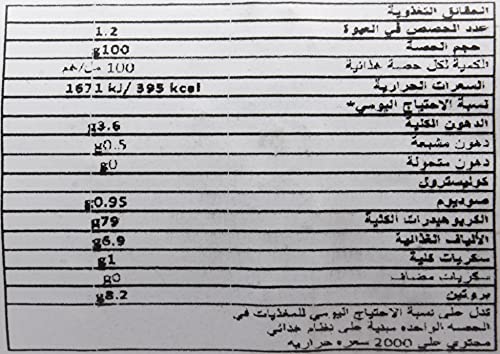 الحقائق التغذوية
عدد الحصص في العبوة 1.2
حجم الحصة g100
الكمية لكل حصة غذائية 100 مل/جم
السعرات الحرارية 1671 kJ/ 395 kcel
نسبة الاحتياج اليومي*
الدهون الكلية g3.6
دهون مشبعة g0.5
دهون متحولة g0
كوليسترول
صوديوم g0.95
الكربوهيدرات الكلية g79
الألياف الغذائية g6.9
سكريات كلية g1
سكريات مضاف g0
بروتين g8.2
تدل على نسبة الاحتياج اليومي للمغذيات في
الحصه الواحده مبنية على نظام غذائي
محتري على 2000 سعره حراريه